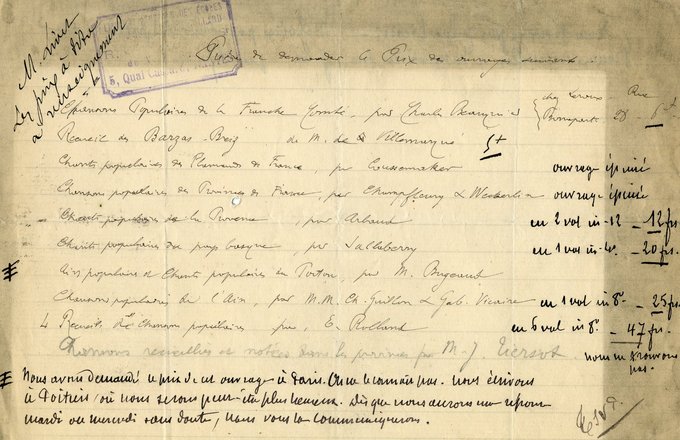 M. Livet
Les prix à titre
de renseignement
5, Quai
Prière de demander le Prix des ouvrages suivants :
Chansons Populaires de la Franche Comté, par Charles Beauquier chez Leroux, Rue Bonaparte 28 - 6
Recueil des Barzas-Breiz de M. de Villemarqué 5+
Chants populaires des Flamands de France, par Coussemaker ouvrage épuisé
Chansons populaires des Provinces de France, par Champfleury & Weckerlin ouvrage épuisé
Chants populaires de la Provence, par Arbaud en 2 vol in-12 - 12 frs.
Chants populaires du pays basque, par Sallaberry en 1 vol in-4o - 20 frs.
Airs populaires et Chants populaires du Poitou, par M. Bugeaud
Chansons populaires de l'Ain, par M.M. Ch. Guillon & Gab. Vicaire en 1 vol in 8o - 25 frs.
4 Recueils de Chansons populaires par E. Rolland en 5 vol in 8o - 47 frs.
Chansons recueillies et notées dans les provinces par M. J. Tiersot. nous ne trouvons pas.
Nous avons demandé le prix de cet ouvrage à Paris. On ne le connait pas. Nous écrivons
à Poitiers où nous serons peut-être plus heureux. Dès que nous aurons une réponse
mardi ou mercredi sans doute, nous vous la communiquerons.